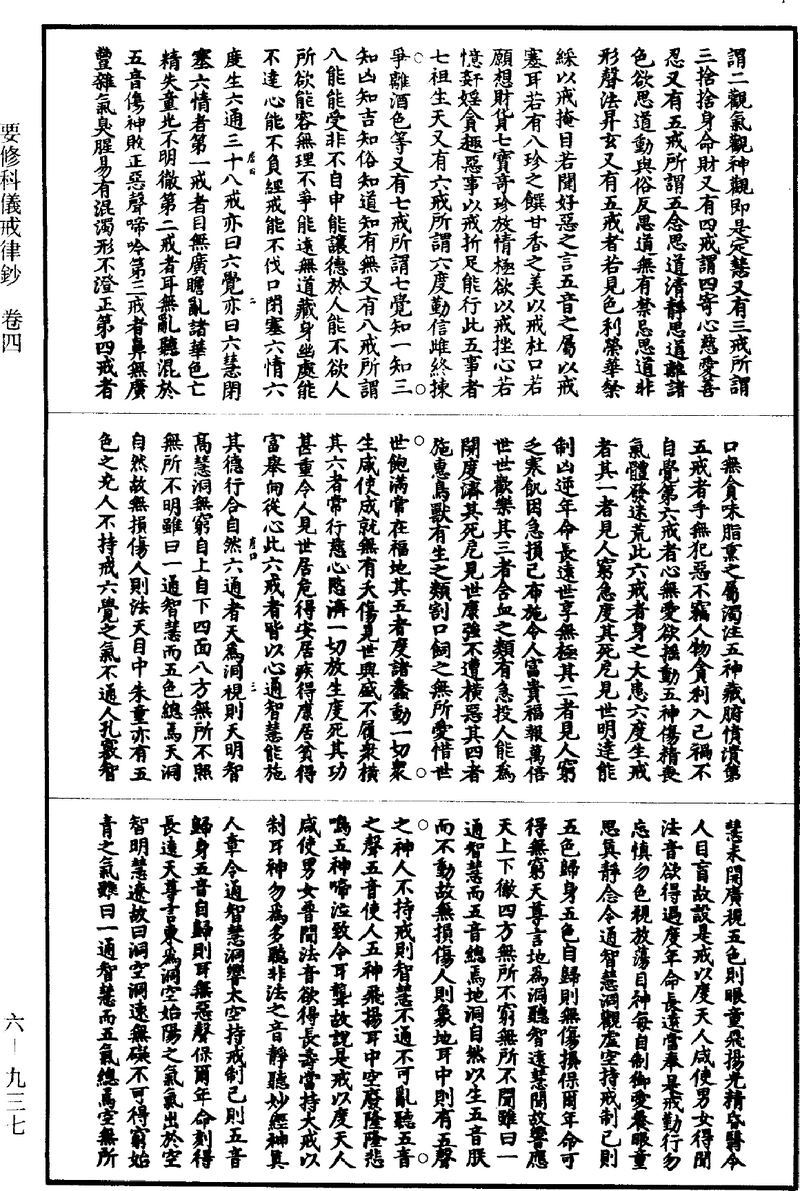 謂二觀氣觀神觀即是定慧又有三戒所謂
三捨捨身命財又有四戒謂四寄心慈愛善
忍又有五戒所謂五念思道清靜思道離諸
色欲思道動與俗反思道無有禁忌思道非
形聲法昇玄又有五戒者若見色利榮華祭
綵以戒掩目若聞好惡之言五音之屬以戒
塞耳若有八珍之饌甘香之美以戒杜口若
願想財貨七寶奇珍放情極欲以戒挫心若
憶姧婬貪趣惡事以戒折足能行此五事者
七祖生天又有六戒所謂六度勤信雌終揀
爭離酒色等又有七戒所謂七覺知一知三
知凶知吉知俗知道知有無又有八戒所謂
八能能受非不自申能讓德於人能不欲人
所欲能容無理不爭能遠無道藏身幽處能
不違心能不負經戒能不伐口閉塞六情六
度生六通三十八戒亦曰六覺亦曰六慧閉
塞六情者第一戒者目無廣瞻亂諸華色亡
精失童此不明徹第二戒者耳無亂聽混於
五音傷神敗正惡聲啼吟第三戒者鼻無廣
豐雜氣臭腥易有混濁形不澄正第四戒者
口無貪味脂熏之屬濁注五神藏腑憒潰第
五戒者手無犯惡不竊人物貪利入己禍不
自覺第六戒者心無愛欲搖動五神傷精喪
氣體發迷荒此六戒者身之大患六度生戒
者其一者見人窮急度其死厄見世明達能
制凶逆年命長遠世享無極其二者見人窮
乏寒飢困急損己布施令人富貴福報萬倍
世世歡樂其三者含血之類有急投人能為
開度濟其死厄見世康強不遭橫惡其四者
施惠鳥獸有生之類割口飼之無所愛惜世
世飽滿常在福地其五者度諸蠢動一切衆
生咸使成就無有夭傷見世興盛不履衆橫
其六者常行慈心愍濟一切放生度死其功
甚重令人見世居危得安居疾得康居貧得
富舉向從心此六戒者皆以心通智慧能施
其德行合自然六通者天為洞視則天明智
高慧洞無窮自上自下四面八方無所不照
無所不明雖曰一通智慧而五色總焉天洞
自然故無損傷人則法天目中朱童亦有五
色之光人不持戒六覺之氣不通人孔竅智
慧未開廣視五色則眼童飛揚光精昏翳令
人目盲故設是戒以度天人咸使男女得聞
法音欲得過度年命長遠當奉是戒勤行勿
忘慎勿色視放蕩目神每自制御愛養眼童
思真靜念令通智慧洞觀虛空持戒制己則
五色歸身五色自歸則無傷損保爾年命可
得無窮天尊言地為洞聽智遠慧開故響應
天上下徹四方無所不窮無所不聞雖曰一
通智慧而五音總焉地洞自然以生五音朕
而不動故無損傷人則象地耳中則有五聲
之神人不持戒則智慧不通不可亂聽五音
之聲五音使人五神飛揚耳中空廢隆隆悲
鳴五神啼泣致令耳聾故說是戒以度天人
咸使男女普聞法音欲得長壽當持大戒以
制耳神勿為多聽非法之音靜聽妙經神真
人章令通智慧洞響太空持戒制己則五音
歸身五音自歸則耳無惡聲保爾年命剋得
長遠天尊言東為洞空始陽之氣氣出於空
智明慧遼故曰洞空洞遠無礙不可得窮始
青之氣雖曰一通智慧而五氣總焉空無所
要修科儀戒律鈔 卷四
六－九三七